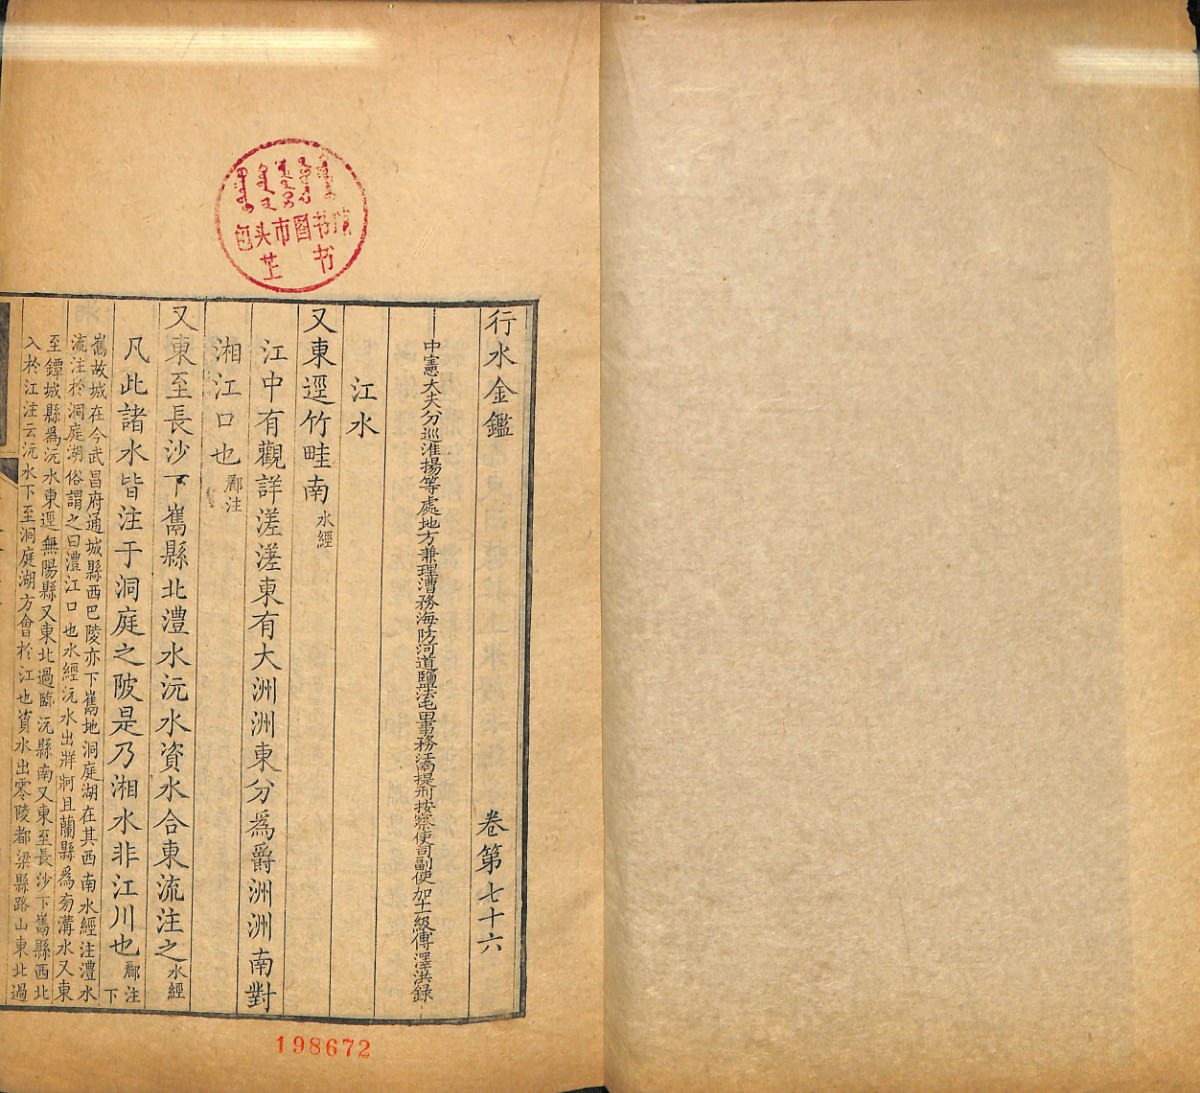 行水金鑑 卷第七十六
中憲大夫分巡淮揚等處地方兼理漕務海防河道鹽法屯田事務江南提刑按察使司副使加十一級傅澤洪錄
江水
又東逕竹畦南水經
江中有觀詳溠溠東有大洲洲東分爲爵洲洲南對
湘江口也酈注
又東至長沙下雋縣北澧水沅水資水合東流注之水經
凡此諸水皆注于洞庭之陂是乃湘水非江川也酈注下
雋故城在今武昌府通城縣西巴陵亦下雋地洞庭湖在其西南水經注澧水
流注於洞庭湖俗謂之曰澧江口也水經沅水出牂牁且蘭縣爲旁溝水又東
至鐔城縣爲沅水東逕無陽縣又東北過臨沅縣南又東至長沙下雋縣西北
入於江注云沅水下至洞庭湖方會於江也資水出零陵都梁縣路山東北過
包头市图书馆
书
198672